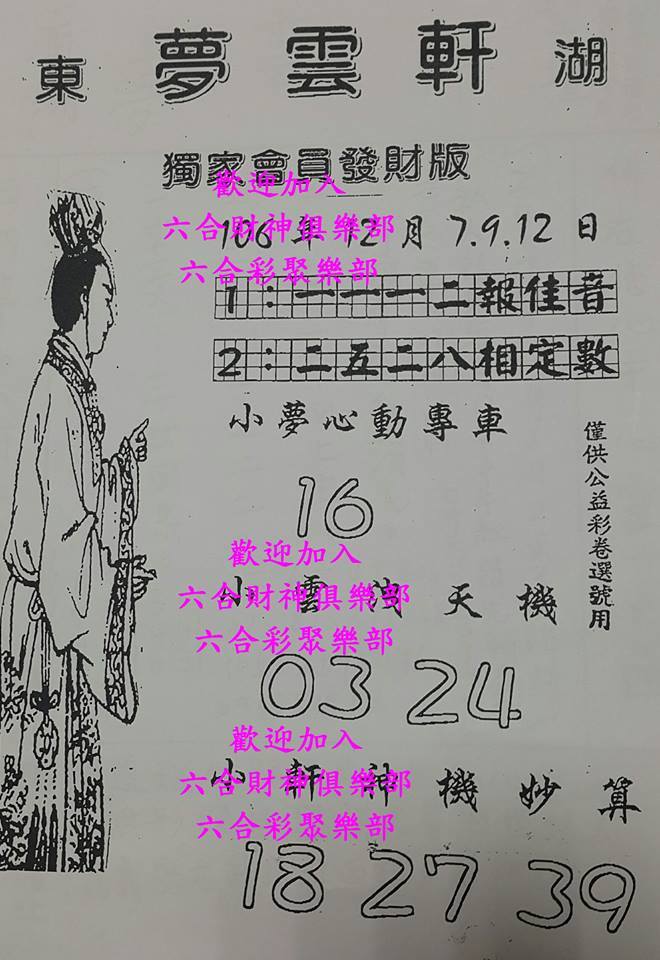 東 夢雲軒 湖
獨家會員發財版
歡迎加入
六合財神俱樂部
106年12月 7.9.12日
六合彩聚樂部
1：一一一二報佳音
2：二五二八相定數
小夢心動專車
僅供公益彩卷選號用
16
歡迎加入
六合財神俱樂部
小雲洩天機
六合彩聚樂部
03 24
歡迎加入
六合財神俱樂部
小軒神機妙算
六合彩聚樂部
18 27 39